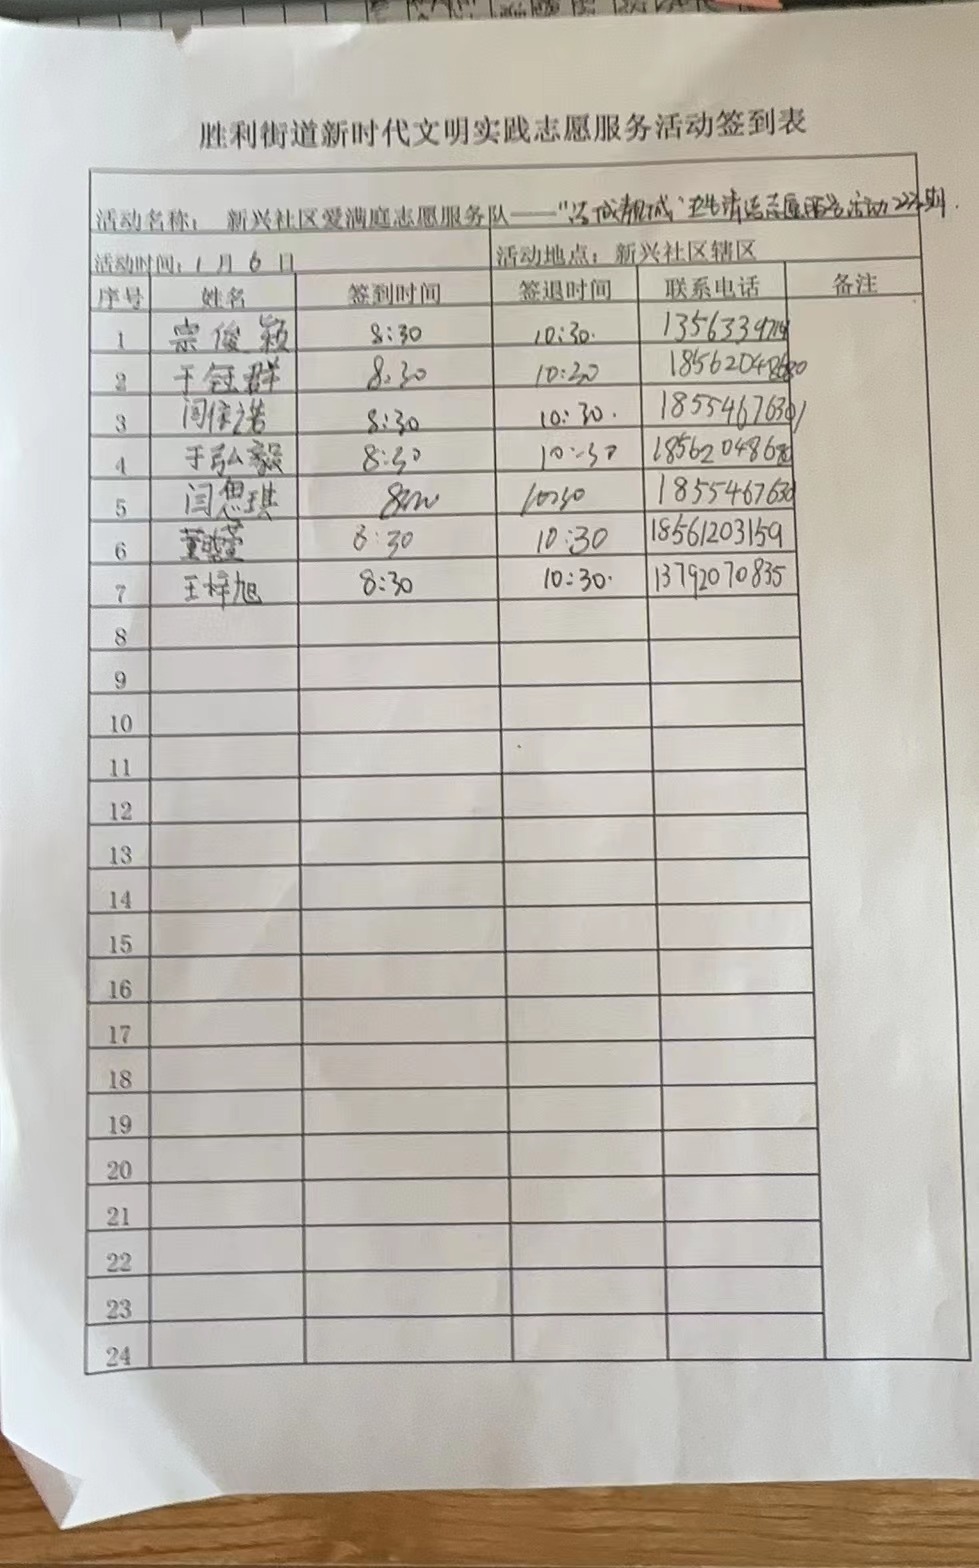 胜利街道新时代文明实践志愿服务活动签到表
活动名称： 新兴社区爱满庭志愿服务队——"洁城靓城"卫生清运志愿服务活动 期
活动时间：1月6日 活动地点：新兴社区辖区
序号 姓名 签到时间 签退时间 联系电话 备注
1 宗俊颖 8:30 10:30. 1356334
2 于冠群 8:30 10:30 18562048680
3 闫依诺 8:30 10:30. 1855467630
4 于弘毅 8:30 10:30 18562048680
5 闫思琪 8:30 10:30 1855467630
6 董 8:30 10:30 18561203159
7 王梓旭 8:30 10:30. 13792070835
8
9
10
11
12
13
14
15
16
17
18
19
20
21
22
23
24